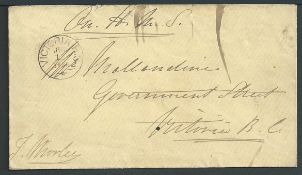 On H. M. S.
VICTORIA
Mollandine
Government Street
Victoria B. C.